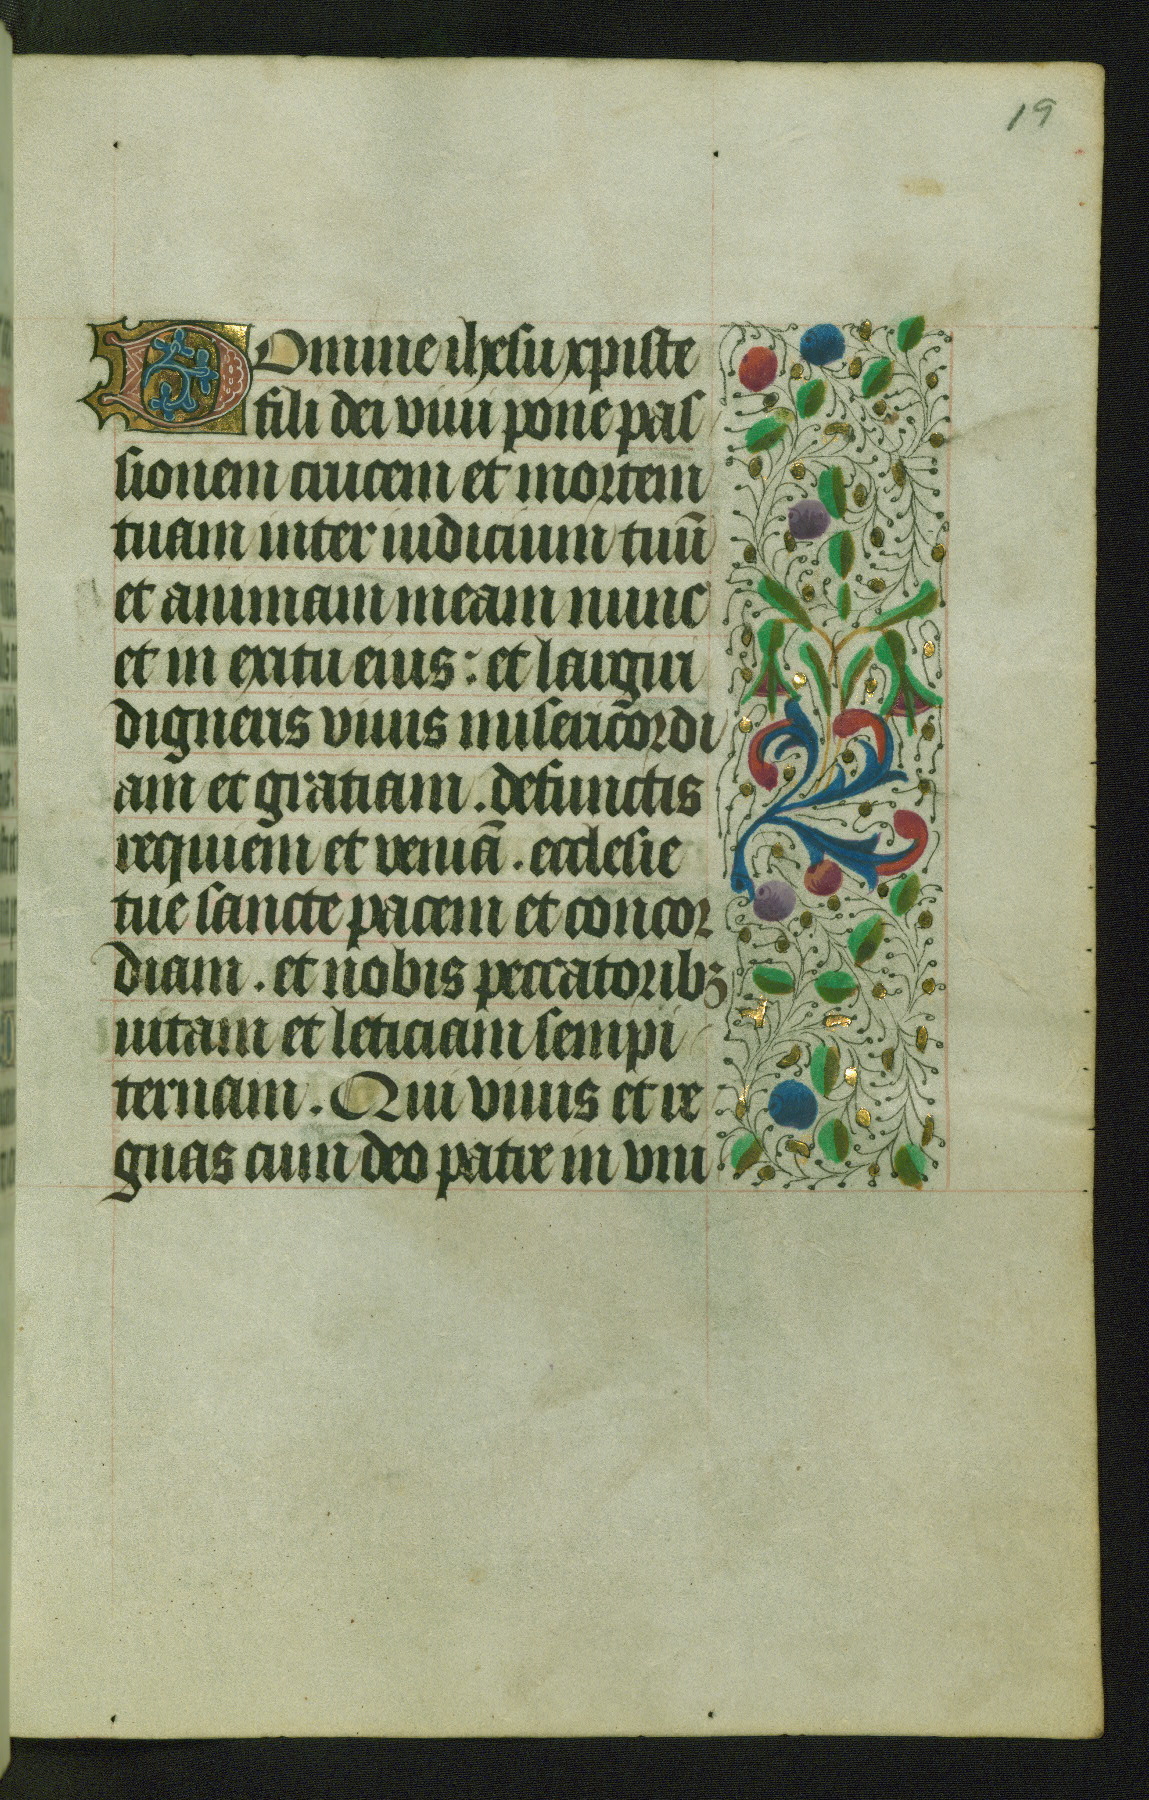 19
Domine ihesu xpiste
fili dei viui pone pas
sionem crucem et mortem
tuam inter iudicium tuū
et animam meam nunc
et in exitu eius : et largiri
digneris viuis misericordi
am et gratiam . defunctis
requiem et veniā . ecclesie
tue sancte pacem et concor
diam . et nobis peccatoribꝫ
uitam et leticiam sempi
ternam . Qui viuis et re
gnas cum deo patre in vni